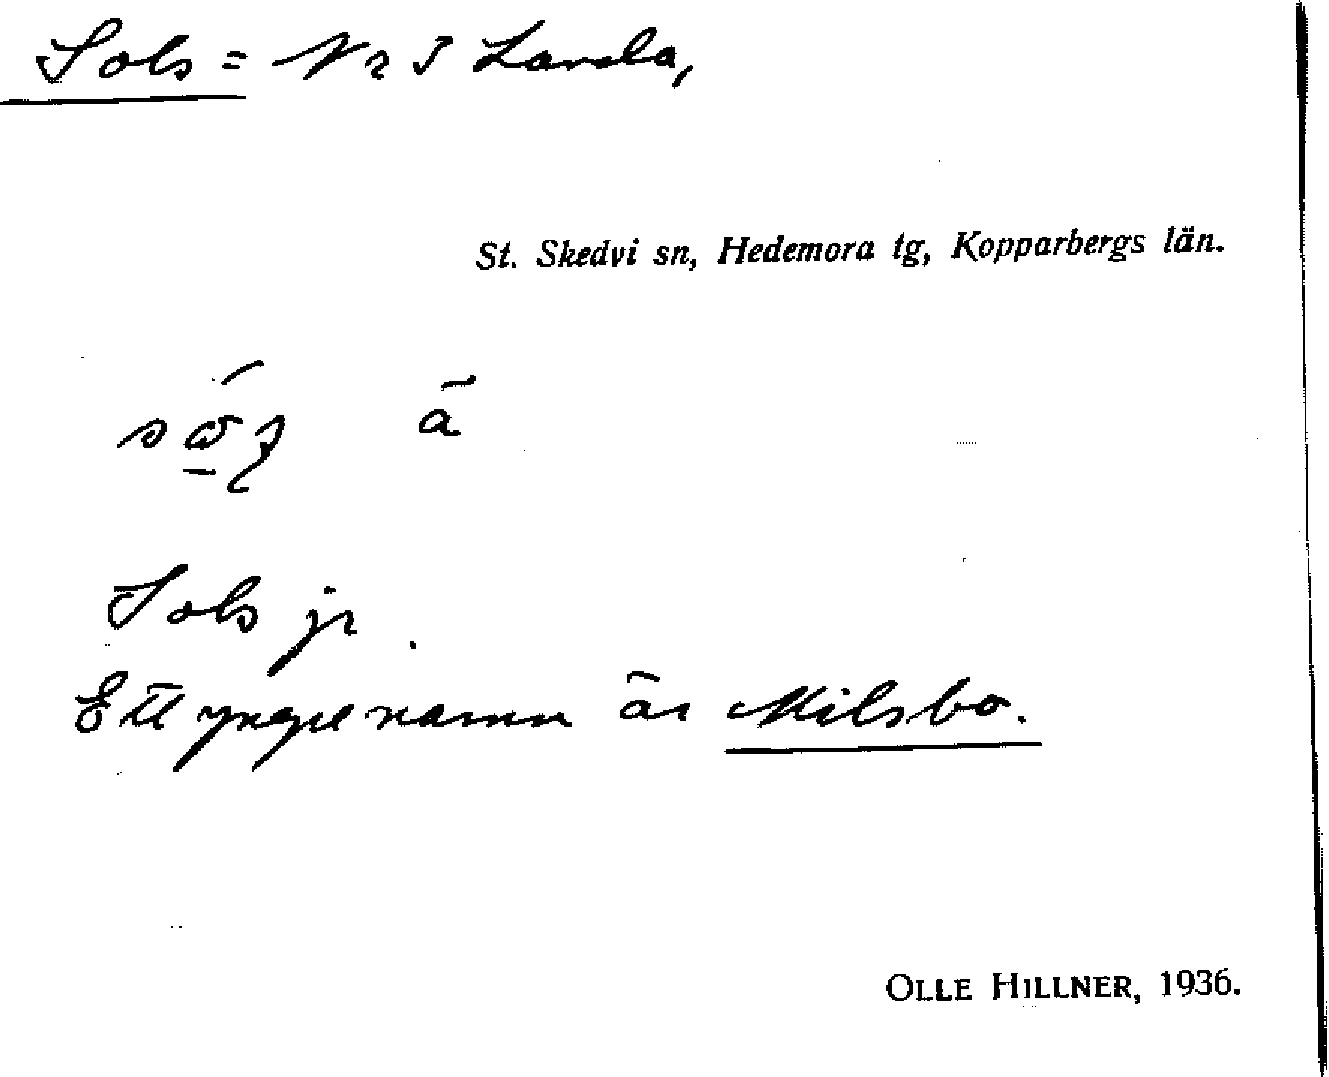 Sols = Nr 5 Landa,
St. Skedvi sn, Hedemora tg, Kopparbergs län.
ā
Sols jr.
Ett yngre namn är Milsbo.
OLLE HILLNER, 1936.